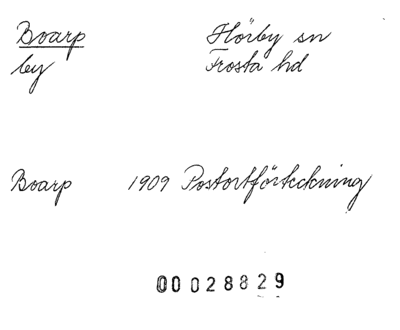 Boarp Hörby sn
by Frosta hd
Boarp 1909 Postortförteckning
00028829